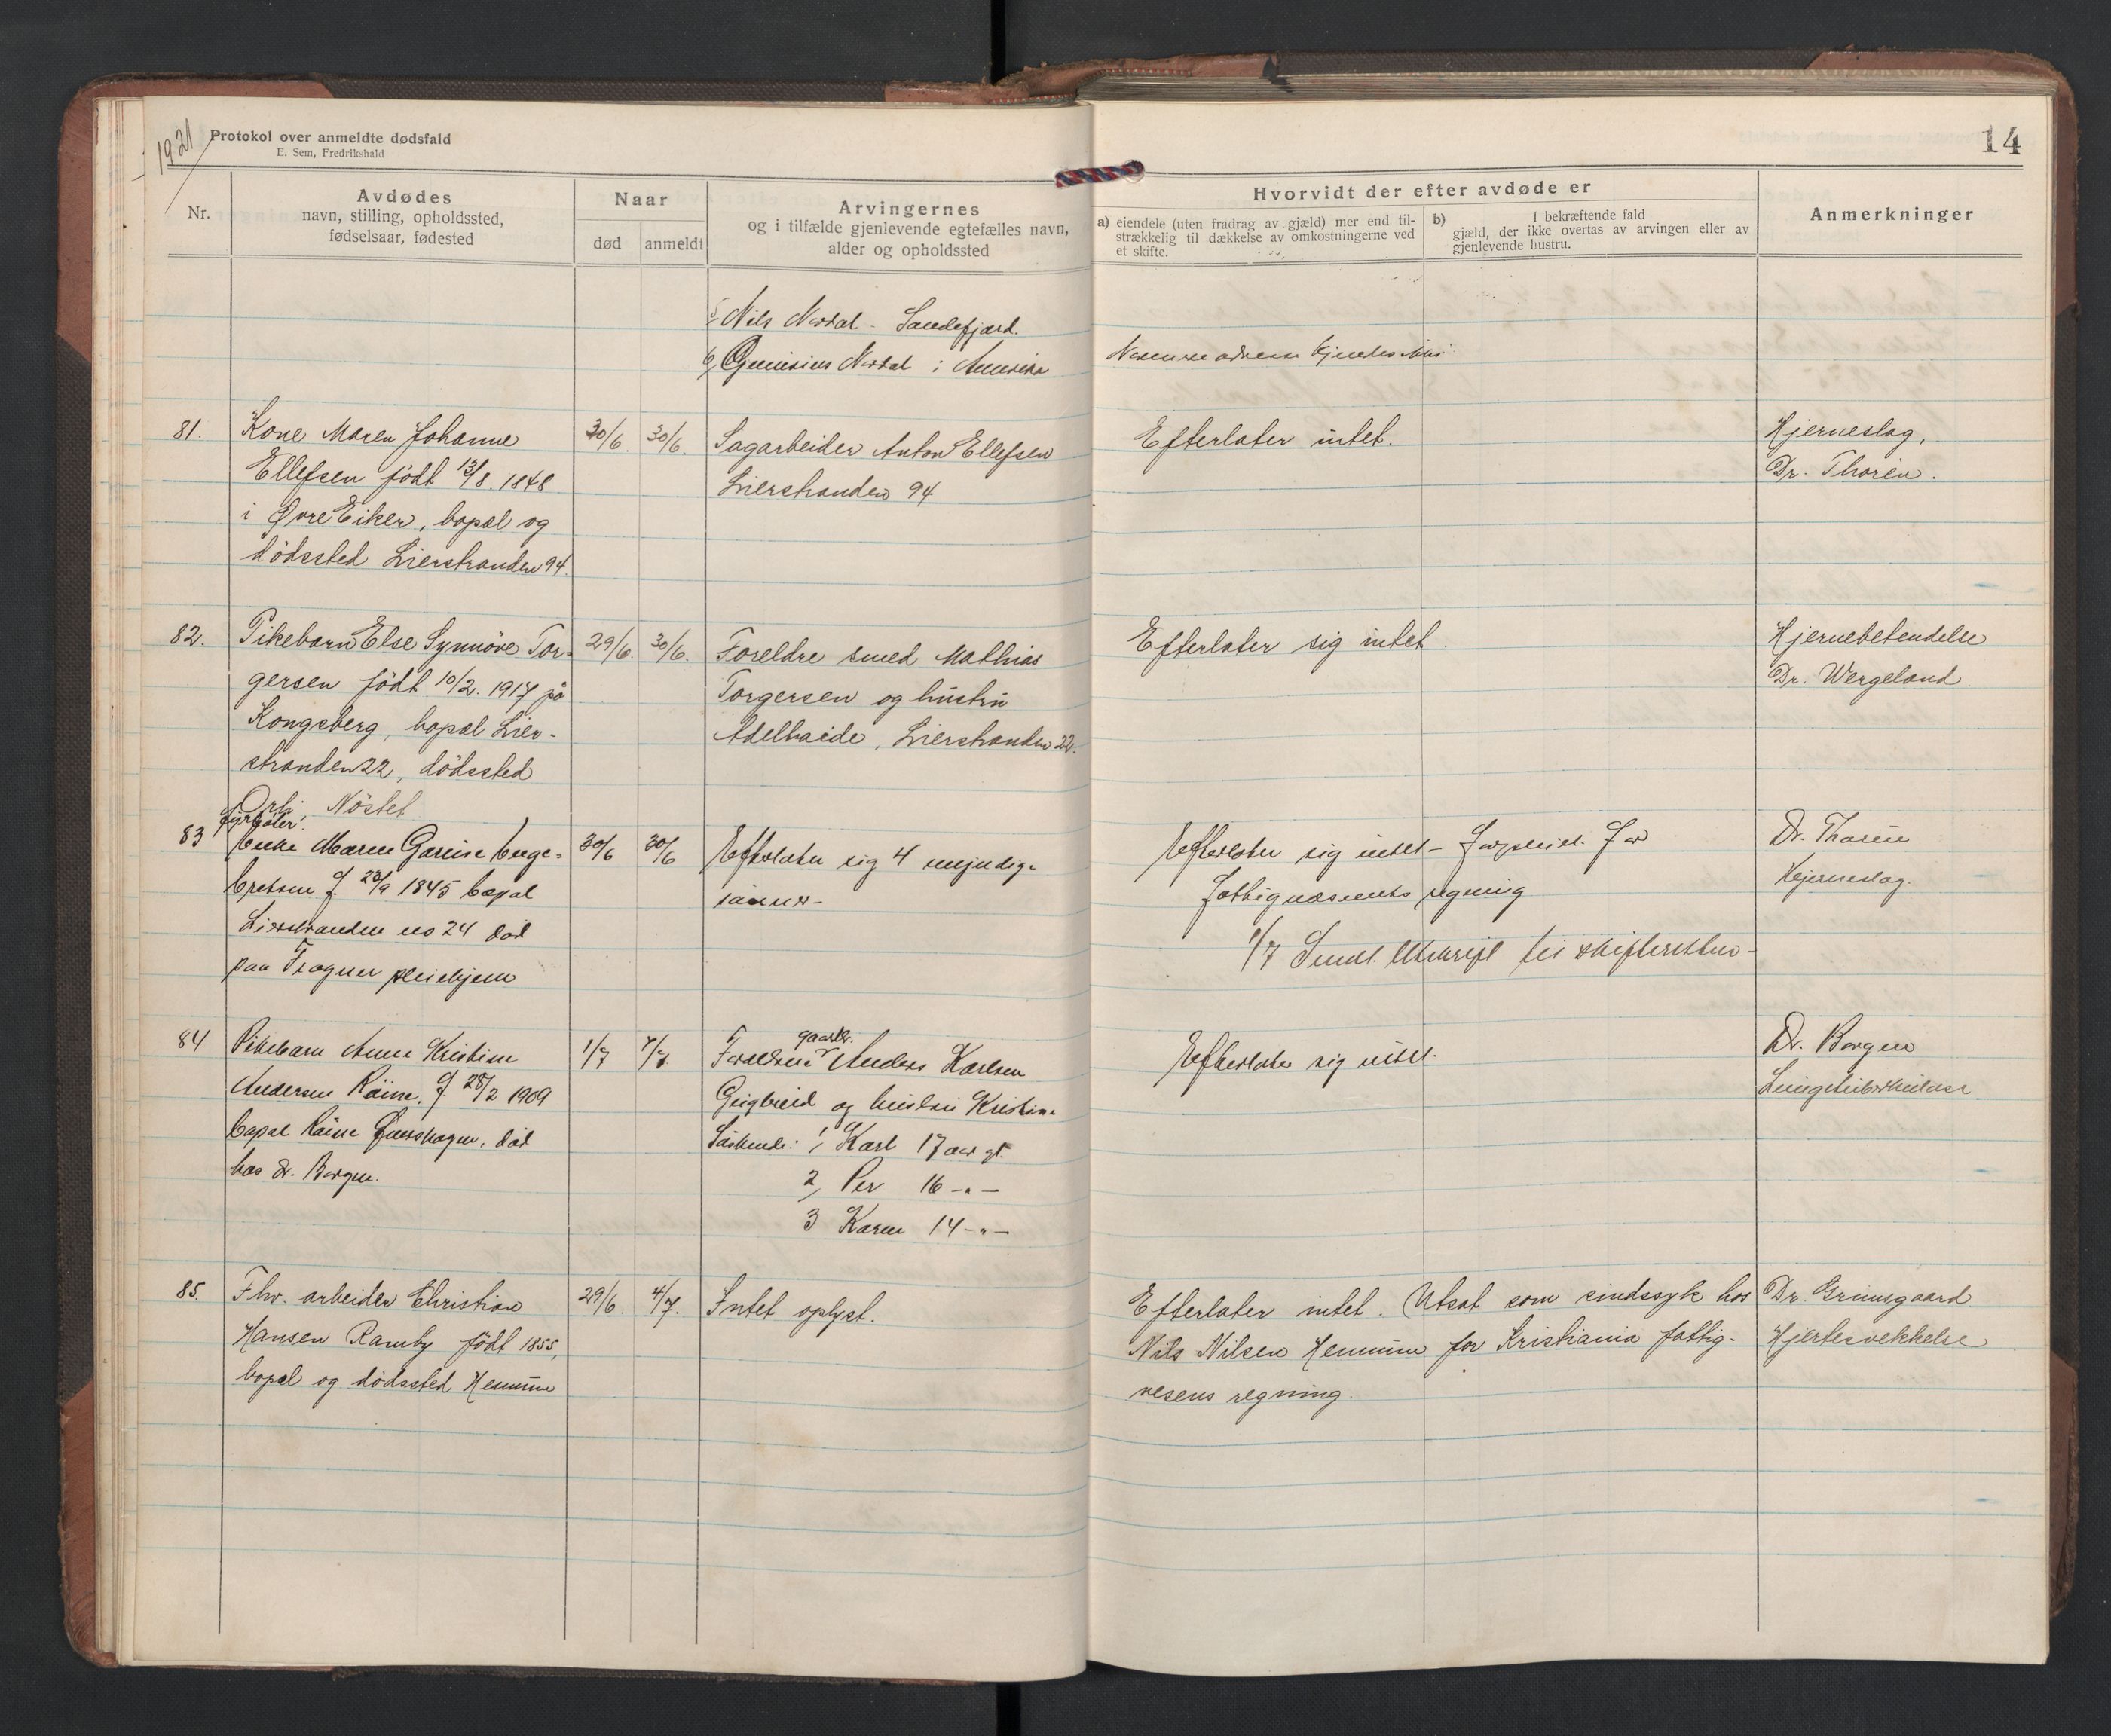 1921
Protokol over anmeldte dødsfald
E. Sem, Fredrikshald
14
Nr.
Avdødes
navn, stilling, opholdssted,
fødselsaar, fødested
Naar
død
anmeldt
Arvingernes
og i tilfælde gjenlevende egtefælles navn,
alder og opholdssted
Hvorvidt der efter avdøde er
a) eiendele (uten fradrag av gjæld) mer end til-
strækkelig til dækkelse av omkostningerne ved
et skifte.
b) I bekræftende fald
gjæld, der ikke overtas av arvingen eller av
gjenlevende hustru.
Anmerkninger
5, Nils Nordal - Sandefjord.
6, Nordal i Amerika
adresse kjendes ikke
81.
Kone Maren Johanne
Ellefsen födt 13/8. 1848
i Øvre Eiker, bopæl og
dödssted Lierstranden 94.
30/6.
30/6.
Sagarbeider Anton Ellefsen
Lierstranden 94
Efterlater intet.
Hjerneslag,
Dr. Thorén.
82.
Pikebarn Else Synnöve Tor-
gersen födt 10/2. 1917 på
Kongsberg, bopæl Lier-
stranden 22, dödssted
Nöstet
29/6.
30/6.
Foreldre smed Mathias
Torgersen og hustru
Adelheide, Lierstranden 22.
Efterlater sig intet.
Hjernebetendelse
Dr. Wergeland
83
fyrböter.
Enke Maren Gurine Enge-
bretsen f. 23/9 1845 bopæl
Lierstranden no 24 död
paa Frogner pleiehjem
30/6
30/6
Efterlater sig 4 myndige
sönner-
Efterlater sig intet - Forpleiet for
Fattigvæsenets regning
1/7 Sendt Utskrift til skifteretten -
Dr. Thorén
Hjerneslag.
84
Pikebarn Anne Kristine
Andersen Röine. f. 28/2 1909
bopæl Röine, död
hos dr. Borgen.
1/7
4/7
Forældrene gaardbr. Anders Karlsen
og hustru Kristine
Söskende: 1, Karl 17 aar gl.
2, Per 16 -"-
3 Karen 14 -"-
Efterlater sig intet.
Dr. Borgen
85.
Fhv. arbeider Christian
Hansen Ramby födt 1855,
bopæl og dödssted Hennum
29/6.
4/7.
Intet oplyst.
Efterlater intet. Utsat som sindssyk hos
Nils Nilsen Hennum for Kristiania fattig-
vesens regning.
Dr. Grimsgaard
Hjertesvekkelse